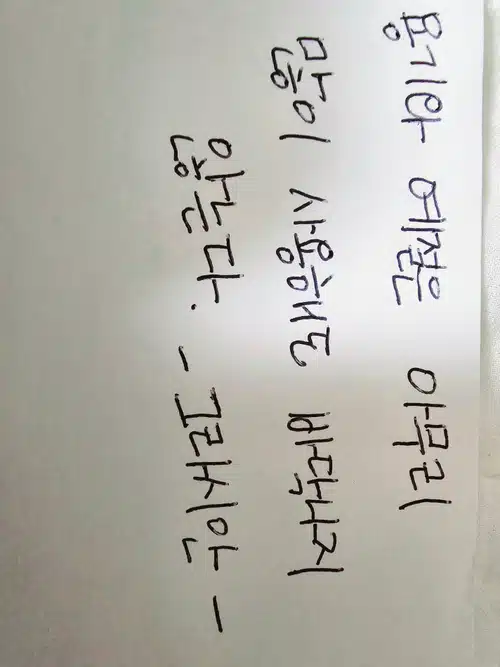 용기와 예절은 아무리
많이 사용해도 바닥나지
않는다. - -